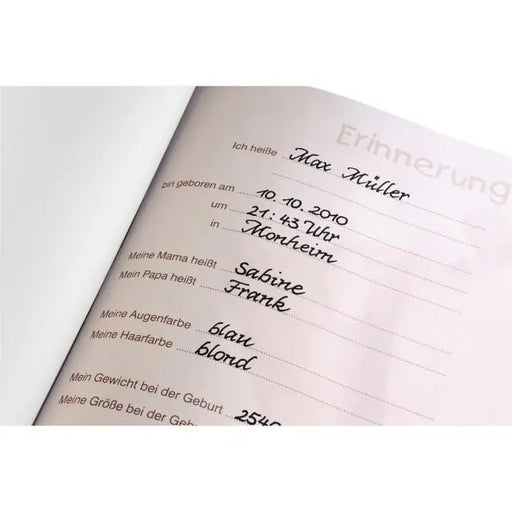 Erinnerung
Ich heiße Max Müller
bin geboren am 10. 10. 2010
um 21:43 Uhr
in Monheim
Meine Mama heißt Sabine
Mein Papa heißt Frank
Meine Augenfarbe blau
Meine Haarfarbe blond
Mein Gewicht bei der Geburt 2540
Meine Größe bei der Geburt